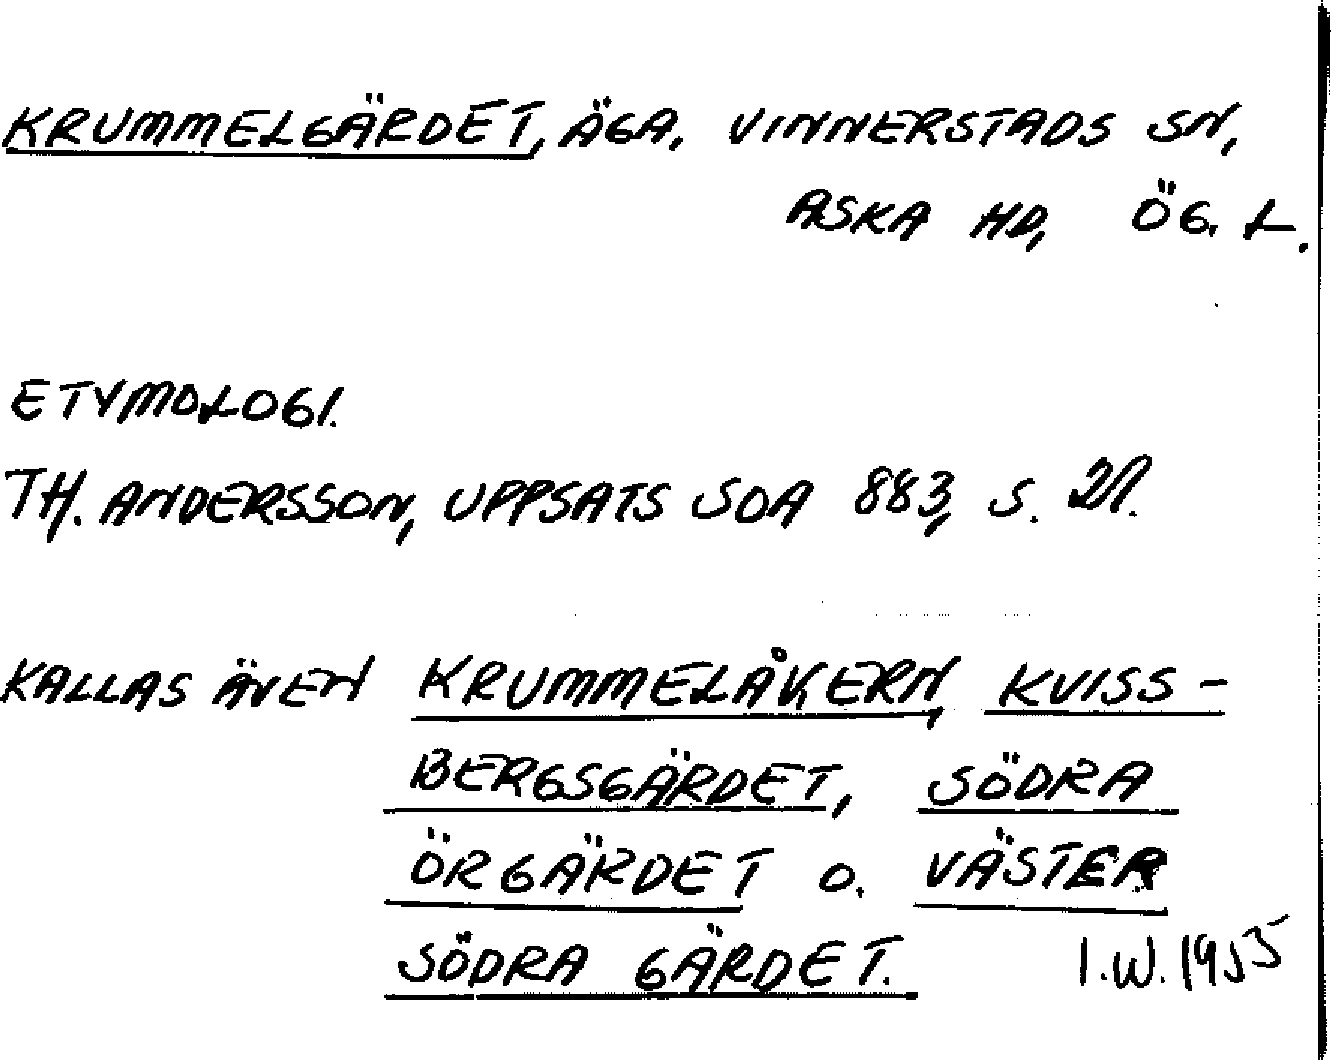 KRUMMELGÄRDET, ÄGA, VINNERSTADS SN,
ASKA HD, ÖG. L.
ETYMOLOGI.
TH. ANDERSSON, UPPSATS SOA 883, S. 21.
KALLAS ÄVEN KRUMMELÅKERN, KVISS-
BERGSGÄRDET, SÖDRA
ÖRGÄRDET O. VÄSTER
SÖDRA GÄRDET. I.W. 1955